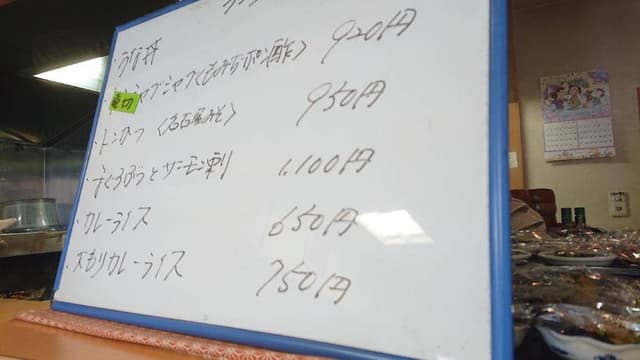 ・うな丼
シャブシャブ〈もみじポン酢〉 920円
・トンかつ〈名古屋みそ〉 950円
とサーモン刺 1,100円
・カレーライス 650円
・大もりカレーライス 750円